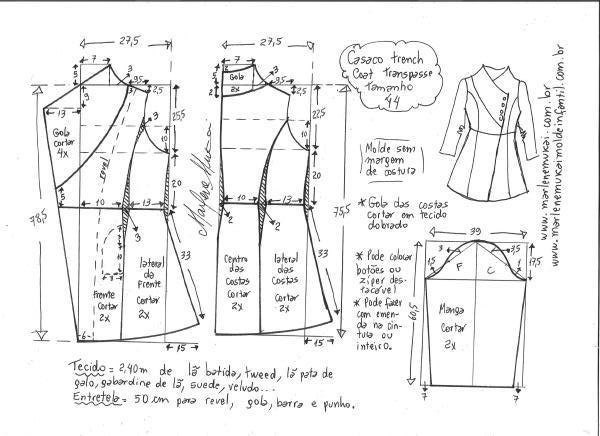 27,5
7
3
9,5
5
9
3
2,5
13
Gola
cortar
4x
revel
22,5
3
10
20
5
10
13
78,5
3
10
7
8
33
Frente
cortar
2x
lateral
da
Frente
cortar
2x
6
15
Marlene Mukai
27,5
7
5
2
Gola
2x
2
3
9,5
2,5
25,5
10
20
10
13
2
2
75,5
33
Centro
das
Costas
cortar
2x
lateral
das
Costas
Cortar
2x
15
Casaco trench
Coat Transpasse
Tamanho
44
Molde sem
margem
de costura
* Gola das costas
cortar em tecido
dobrado
* Pode colocar
botões ou
zíper des-
tacável
* Pode fazer
com emen-
da na cin-
tura ou
inteiro.
39
3
3,5
1,5
F
C
1
17,5
60,5
Manga
Cortar
2x
7
7
www.marlenemukai.com.br
www.marlenemukaimoldeinfantil.com.br
Tecido = 2,40m de lã batida, tweed, lã pata de
galo, gabardine de lã, suede, veludo...
Entretela = 50 cm para revel, gola, barra e punho.